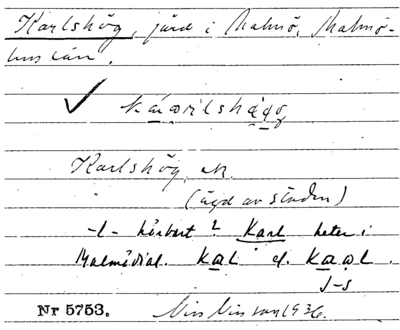 Karlshög, järd i Malmö, Malmö-
hus län.
Karlshög, ek.
(ägd av staden)
-l- hörbart? Karl heter i
Malmödial. kal el. kaal.
J-s
Nr 5753. Nils Nilsson 1936.